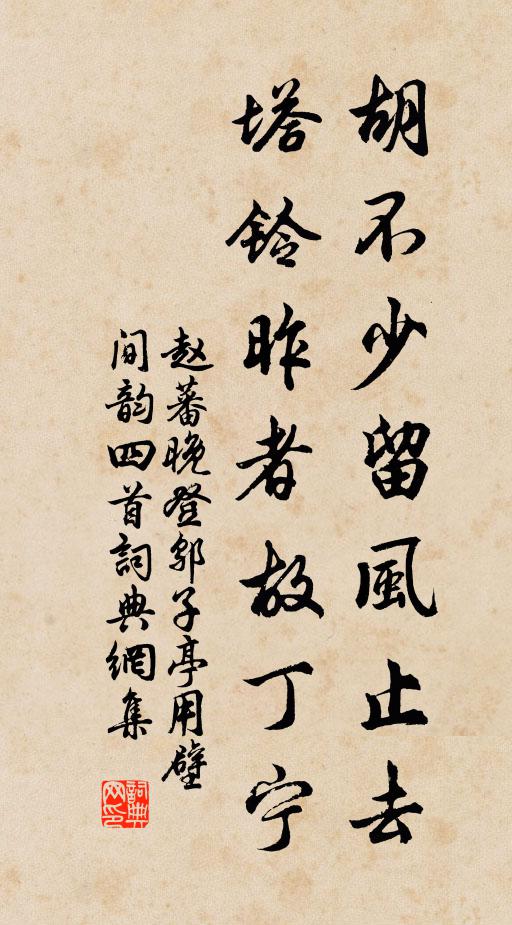 胡不少留風止去
塔鈴昨者故丁宁
赵蕃晚登邬子亭用壁
间韵四首詞典網集
詞典
网印